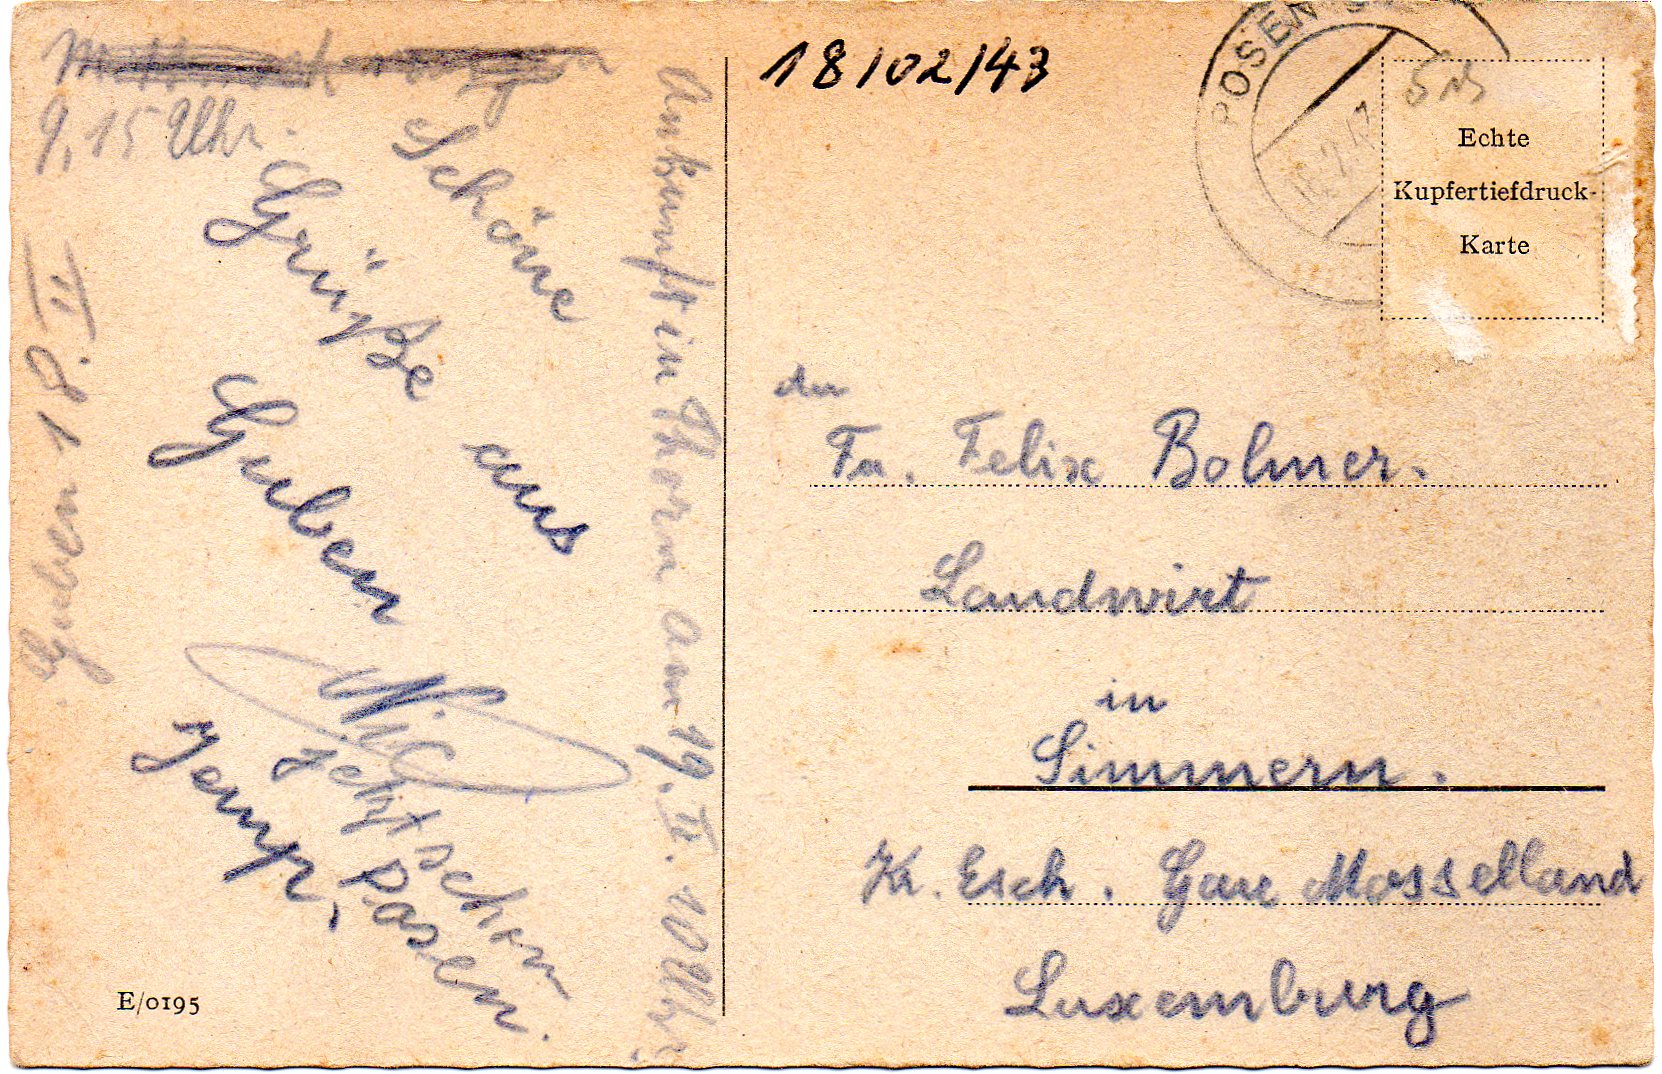 9,15 Uhr.
Guben 18. II
Schöne
Grüße aus
Guben
Nic
Jempy,
jetzt schon
Posen.
Ankunft in Thorn am 19. II. 10 Uhr.
E/0195
18/02/43
POSEN
18.2.43
Echte
Kupfertiefdruck-
Karte
Fa. Felix Bolmer.
Landwirt
in
Simmern.
Kr. Esch. Gaue Mosselland
Luxemburg